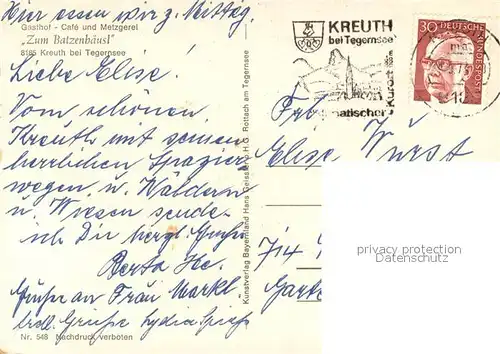 Hier essen wir z. Mittag.
Gasthof - Café und Metzgerei
„Zum Batzenhäusl"
8185 Kreuth bei Tegernsee
Liebe Elise!
Vom schönen
Kreuth mit seinen
herrlichen Spazier
wegen u. Wäldern
u. Wiesen sende
ich Dir herzl. Grüße
Berta He.
Grüße an Frau Markl.
herzl. Grüße Lydia
Nr. 548 Nachdruck verboten
Kunstverlag Bayernland Hans Geiss o.H.G. Rottach am Tegernsee
KREUTH
bei Tegernsee
Kurort
matischer
30
DEUTSCHE
BUNDESPOST
Elise Wurst
714
Garte
privacy protection
Datenschutz